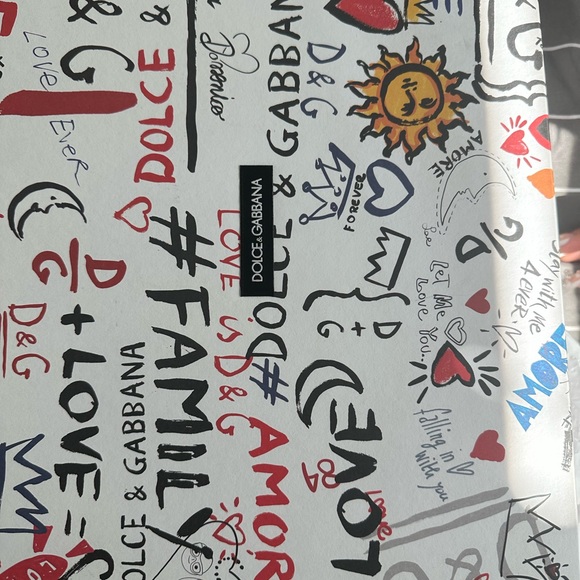 LOVE
EVER
D
G
D&G
+ LOVE =
& G
DOLCE &
DOLCE & GABBANA
#FAMIL
Domenico
LOVE is D&G
# AMOR
DOLCE & GABBANA
DOLCE & GABBANA
D&G
FOREVER
D
+
G
LOVE
love
AMORE
Let Me
Love You..
falling in
with you
Stay with me
4 ever
AMORE
G